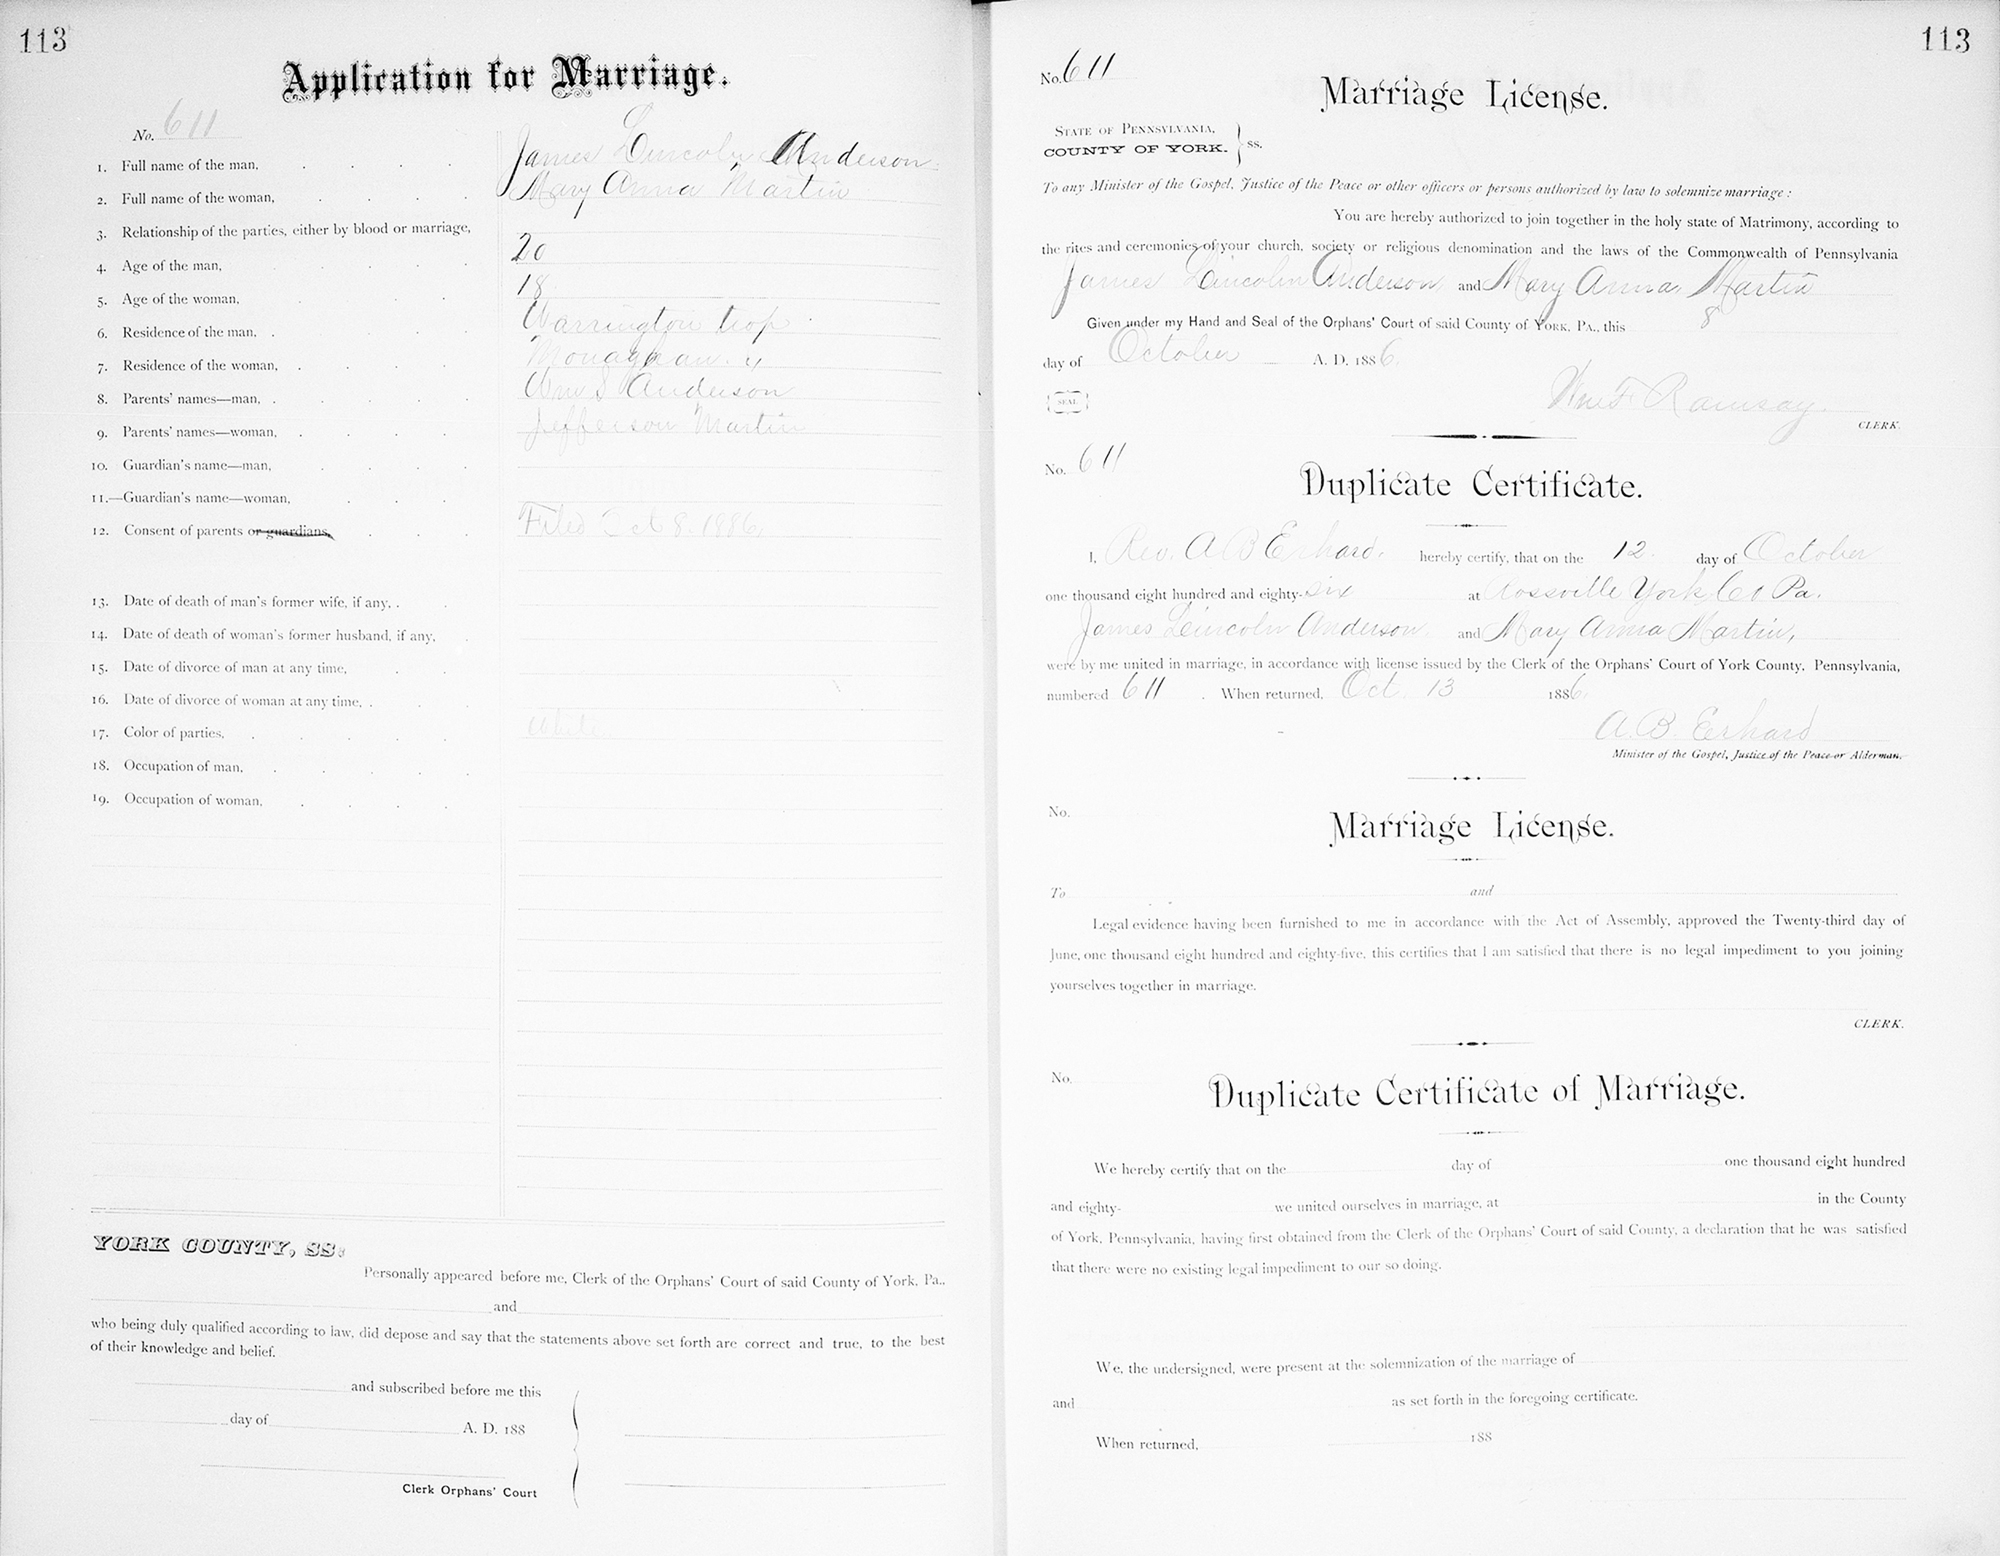 113
Application for Marriage.
No. 611
1. Full name of the man, James Lincoln Anderson
2. Full name of the woman, Mary Anna Martin
3. Relationship of the parties, either by blood or marriage,
4. Age of the man, 20
5. Age of the woman, 18
6. Residence of the man, Warrington twp
7. Residence of the woman, Monaghan "
8. Parents' names—man, Wm S Anderson
9. Parents' names—woman, Jefferson Martin
10. Guardian's name—man,
11.—Guardian's name—woman,
12. Consent of parents or guardians, Filed Oct 8. 1886,
13. Date of death of man's former wife, if any,
14. Date of death of woman's former husband, if any,
15. Date of divorce of man at any time,
16. Date of divorce of woman at any time,
17. Color of parties, White
18. Occupation of man,
19. Occupation of woman,
YORK COUNTY, SS:
Personally appeared before me, Clerk of the Orphans' Court of said County of York, Pa.,
and
who being duly qualified according to law, did depose and say that the statements above set forth are correct and true, to the best
of their knowledge and belief.
and subscribed before me this
day of A. D. 188
Clerk Orphans' Court
113
No. 611
Marriage License.
STATE OF PENNSYLVANIA,
COUNTY OF YORK. } ss.
To any Minister of the Gospel, Justice of the Peace or other officers or persons authorized by law to solemnize marriage:
You are hereby authorized to join together in the holy state of Matrimony, according to
the rites and ceremonies of your church, society or religious denomination and the laws of the Commonwealth of Pennsylvania
James Lincoln Anderson and Mary Anna Martin
Given under my Hand and Seal of the Orphans' Court of said County of York, Pa., this 8
day of October A. D. 1886.
SEAL
Wm F Ramsay
CLERK.
No. 611
Duplicate Certificate.
I, Rev. A B Erhard. hereby certify, that on the 12. day of October
one thousand eight hundred and eighty-six at Rossville York Co Pa.
James Lincoln Anderson and Mary Anna Martin,
were by me united in marriage, in accordance with license issued by the Clerk of the Orphans' Court of York County, Pennsylvania,
numbered 611 . When returned, Oct. 13 1886.
A. B. Erhard
Minister of the Gospel, Justice of the Peace or Alderman.
No.
Marriage License.
To and
Legal evidence having been furnished to me in accordance with the Act of Assembly, approved the Twenty-third day of
June, one thousand eight hundred and eighty-five, this certifies that I am satisfied that there is no legal impediment to you joining
yourselves together in marriage.
CLERK.
No.
Duplicate Certificate of Marriage.
We hereby certify that on the day of one thousand eight hundred
and eighty- we united ourselves in marriage, at in the County
of York, Pennsylvania, having first obtained from the Clerk of the Orphans' Court of said County, a declaration that he was satisfied
that there were no existing legal impediment to our so doing.
We, the undersigned, were present at the solemnization of the marriage of
and as set forth in the foregoing certificate.
When returned, 188